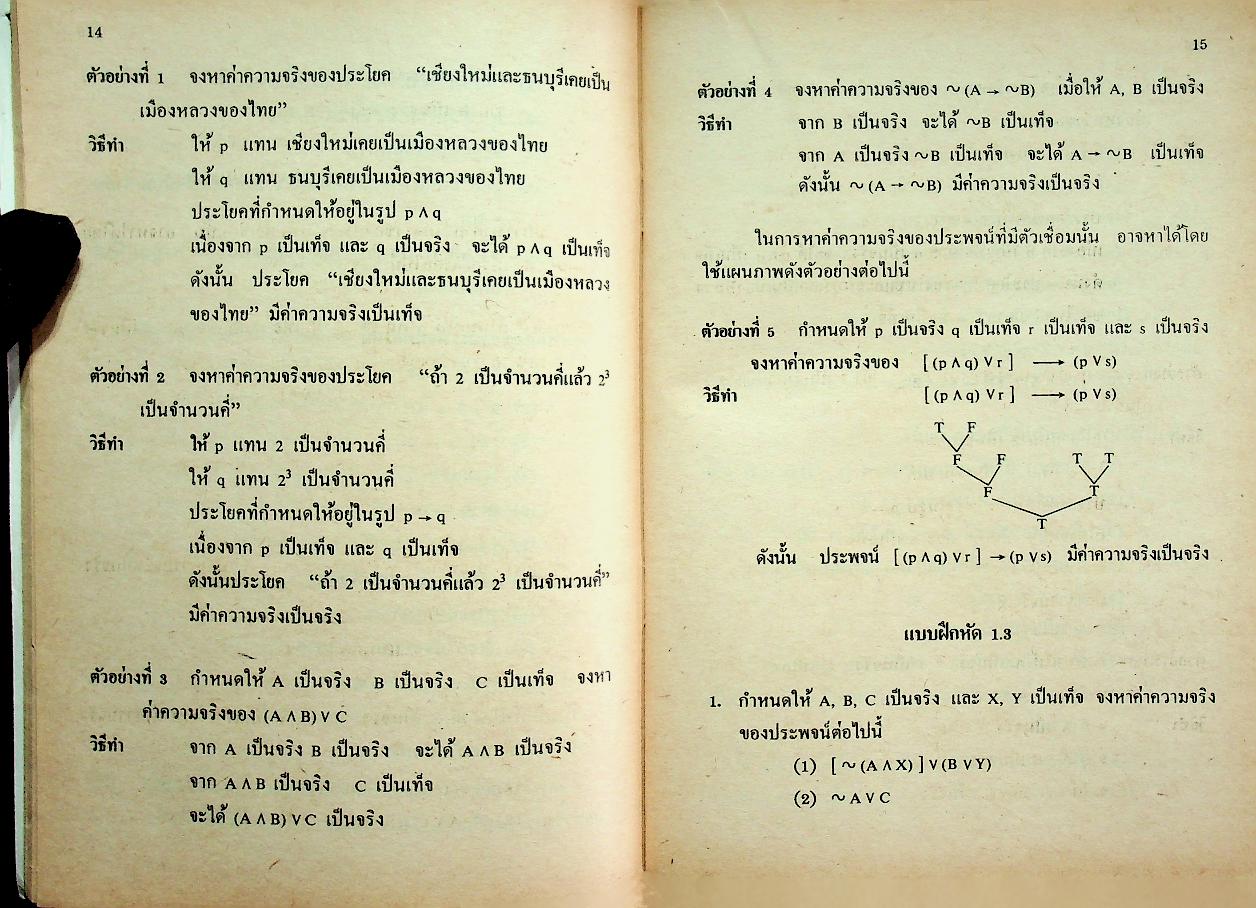 14
ตัวอย่างที่ 1 จงหาค่าความจริงของประโยค “เชียงใหม่และธนบุรีเคยเป็น
เมืองหลวงของไทย”
วิธีทำ ให้ p แทน เชียงใหม่เคยเป็นเมืองหลวงของไทย
ให้ q แทน ธนบุรีเคยเป็นเมืองหลวงของไทย
ประโยคที่กำหนดให้อยู่ในรูป p ∧ q
เนื่องจาก p เป็นเท็จ และ q เป็นจริง จะได้ p ∧ q เป็นเท็จ
ดังนั้น ประโยค “เชียงใหม่และธนบุรีเคยเป็นเมืองหลวง
ของไทย” มีค่าความจริงเป็นเท็จ
ตัวอย่างที่ 2 จงหาค่าความจริงของประโยค “ถ้า 2 เป็นจำนวนคี่แล้ว 2³
เป็นจำนวนคี่”
วิธีทำ ให้ p แทน 2 เป็นจำนวนคี่
ให้ q แทน 2³ เป็นจำนวนคี่
ประโยคที่กำหนดให้อยู่ในรูป p → q
เนื่องจาก p เป็นเท็จ และ q เป็นเท็จ
ดังนั้นประโยค “ถ้า 2 เป็นจำนวนคี่แล้ว 2³ เป็นจำนวนคี่”
มีค่าความจริงเป็นจริง
ตัวอย่างที่ 3 กำหนดให้ A เป็นจริง B เป็นจริง C เป็นเท็จ จงหา
ค่าความจริงของ (A ∧ B) ∨ C
วิธีทำ จาก A เป็นจริง B เป็นจริง จะได้ A ∧ B เป็นจริง
จาก A ∧ B เป็นจริง C เป็นเท็จ
จะได้ (A ∧ B) ∨ C เป็นจริง
15
ตัวอย่างที่ 4 จงหาค่าความจริงของ ~ (A → ~B) เมื่อให้ A, B เป็นจริง
วิธีทำ จาก B เป็นจริง จะได้ ~B เป็นเท็จ
จาก A เป็นจริง ~B เป็นเท็จ จะได้ A → ~B เป็นเท็จ
ดังนั้น ~ (A → ~B) มีค่าความจริงเป็นจริง
ในการหาค่าความจริงของประพจน์ที่มีตัวเชื่อมนั้น อาจหาได้โดย
ใช้แผนภาพดังตัวอย่างต่อไปนี้
ตัวอย่างที่ 5 กำหนดให้ p เป็นจริง q เป็นเท็จ r เป็นเท็จ และ s เป็นจริง
จงหาค่าความจริงของ [ (p ∧ q) ∨ r ] ⟶ (p ∨ s)
วิธีทำ [ (p ∧ q) ∨ r ] ⟶ (p ∨ s)
T F
F F T T
F T
T
ดังนั้น ประพจน์ [ (p ∧ q) ∨ r ] → (p ∨ s) มีค่าความจริงเป็นจริง
แบบฝึกหัด 1.3
1. กำหนดให้ A, B, C เป็นจริง และ X, Y เป็นเท็จ จงหาค่าความจริง
ของประพจน์ต่อไปนี้
(1) [ ~ (A ∧ X) ] ∨ (B ∨ Y)
(2) ~ A ∨ C